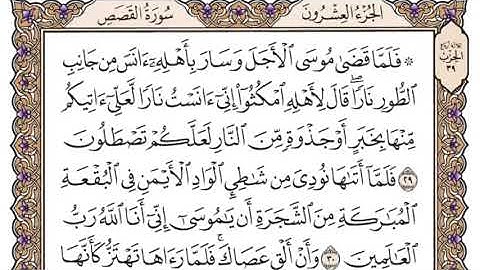 الجزء العشرون
سورة القصص
۞ فَلَمَّا قَضَىٰ مُوسَى ٱلْأَجَلَ وَسَارَ بِأَهْلِهِۦٓ ءَانَسَ مِن جَانِبِ
ٱلطُّورِ نَارًا ۖ قَالَ لِأَهْلِهِ ٱمْكُثُوٓا۟ إِنِّىٓ ءَانَسْتُ نَارًا لَّعَلِّىٓ ءَاتِيكُم
مِّنْهَا بِخَبَرٍ أَوْ جَذْوَةٍ مِّنَ ٱلنَّارِ لَعَلَّكُمْ تَصْطَلُونَ
٢٩ فَلَمَّآ أَتَىٰهَا نُودِىَ مِن شَٰطِئِ ٱلْوَادِ ٱلْأَيْمَنِ فِى ٱلْبُقْعَةِ
ٱلْمُبَٰرَكَةِ مِنَ ٱلشَّجَرَةِ أَن يَٰمُوسَىٰٓ إِنِّىٓ أَنَا ٱللَّهُ رَبُّ
ٱلْعَٰلَمِينَ ٣٠ وَأَنْ أَلْقِ عَصَاكَ ۖ فَلَمَّا رَءَاهَا تَهْتَزُّ كَأَنَّهَا
الحزب
٣٩